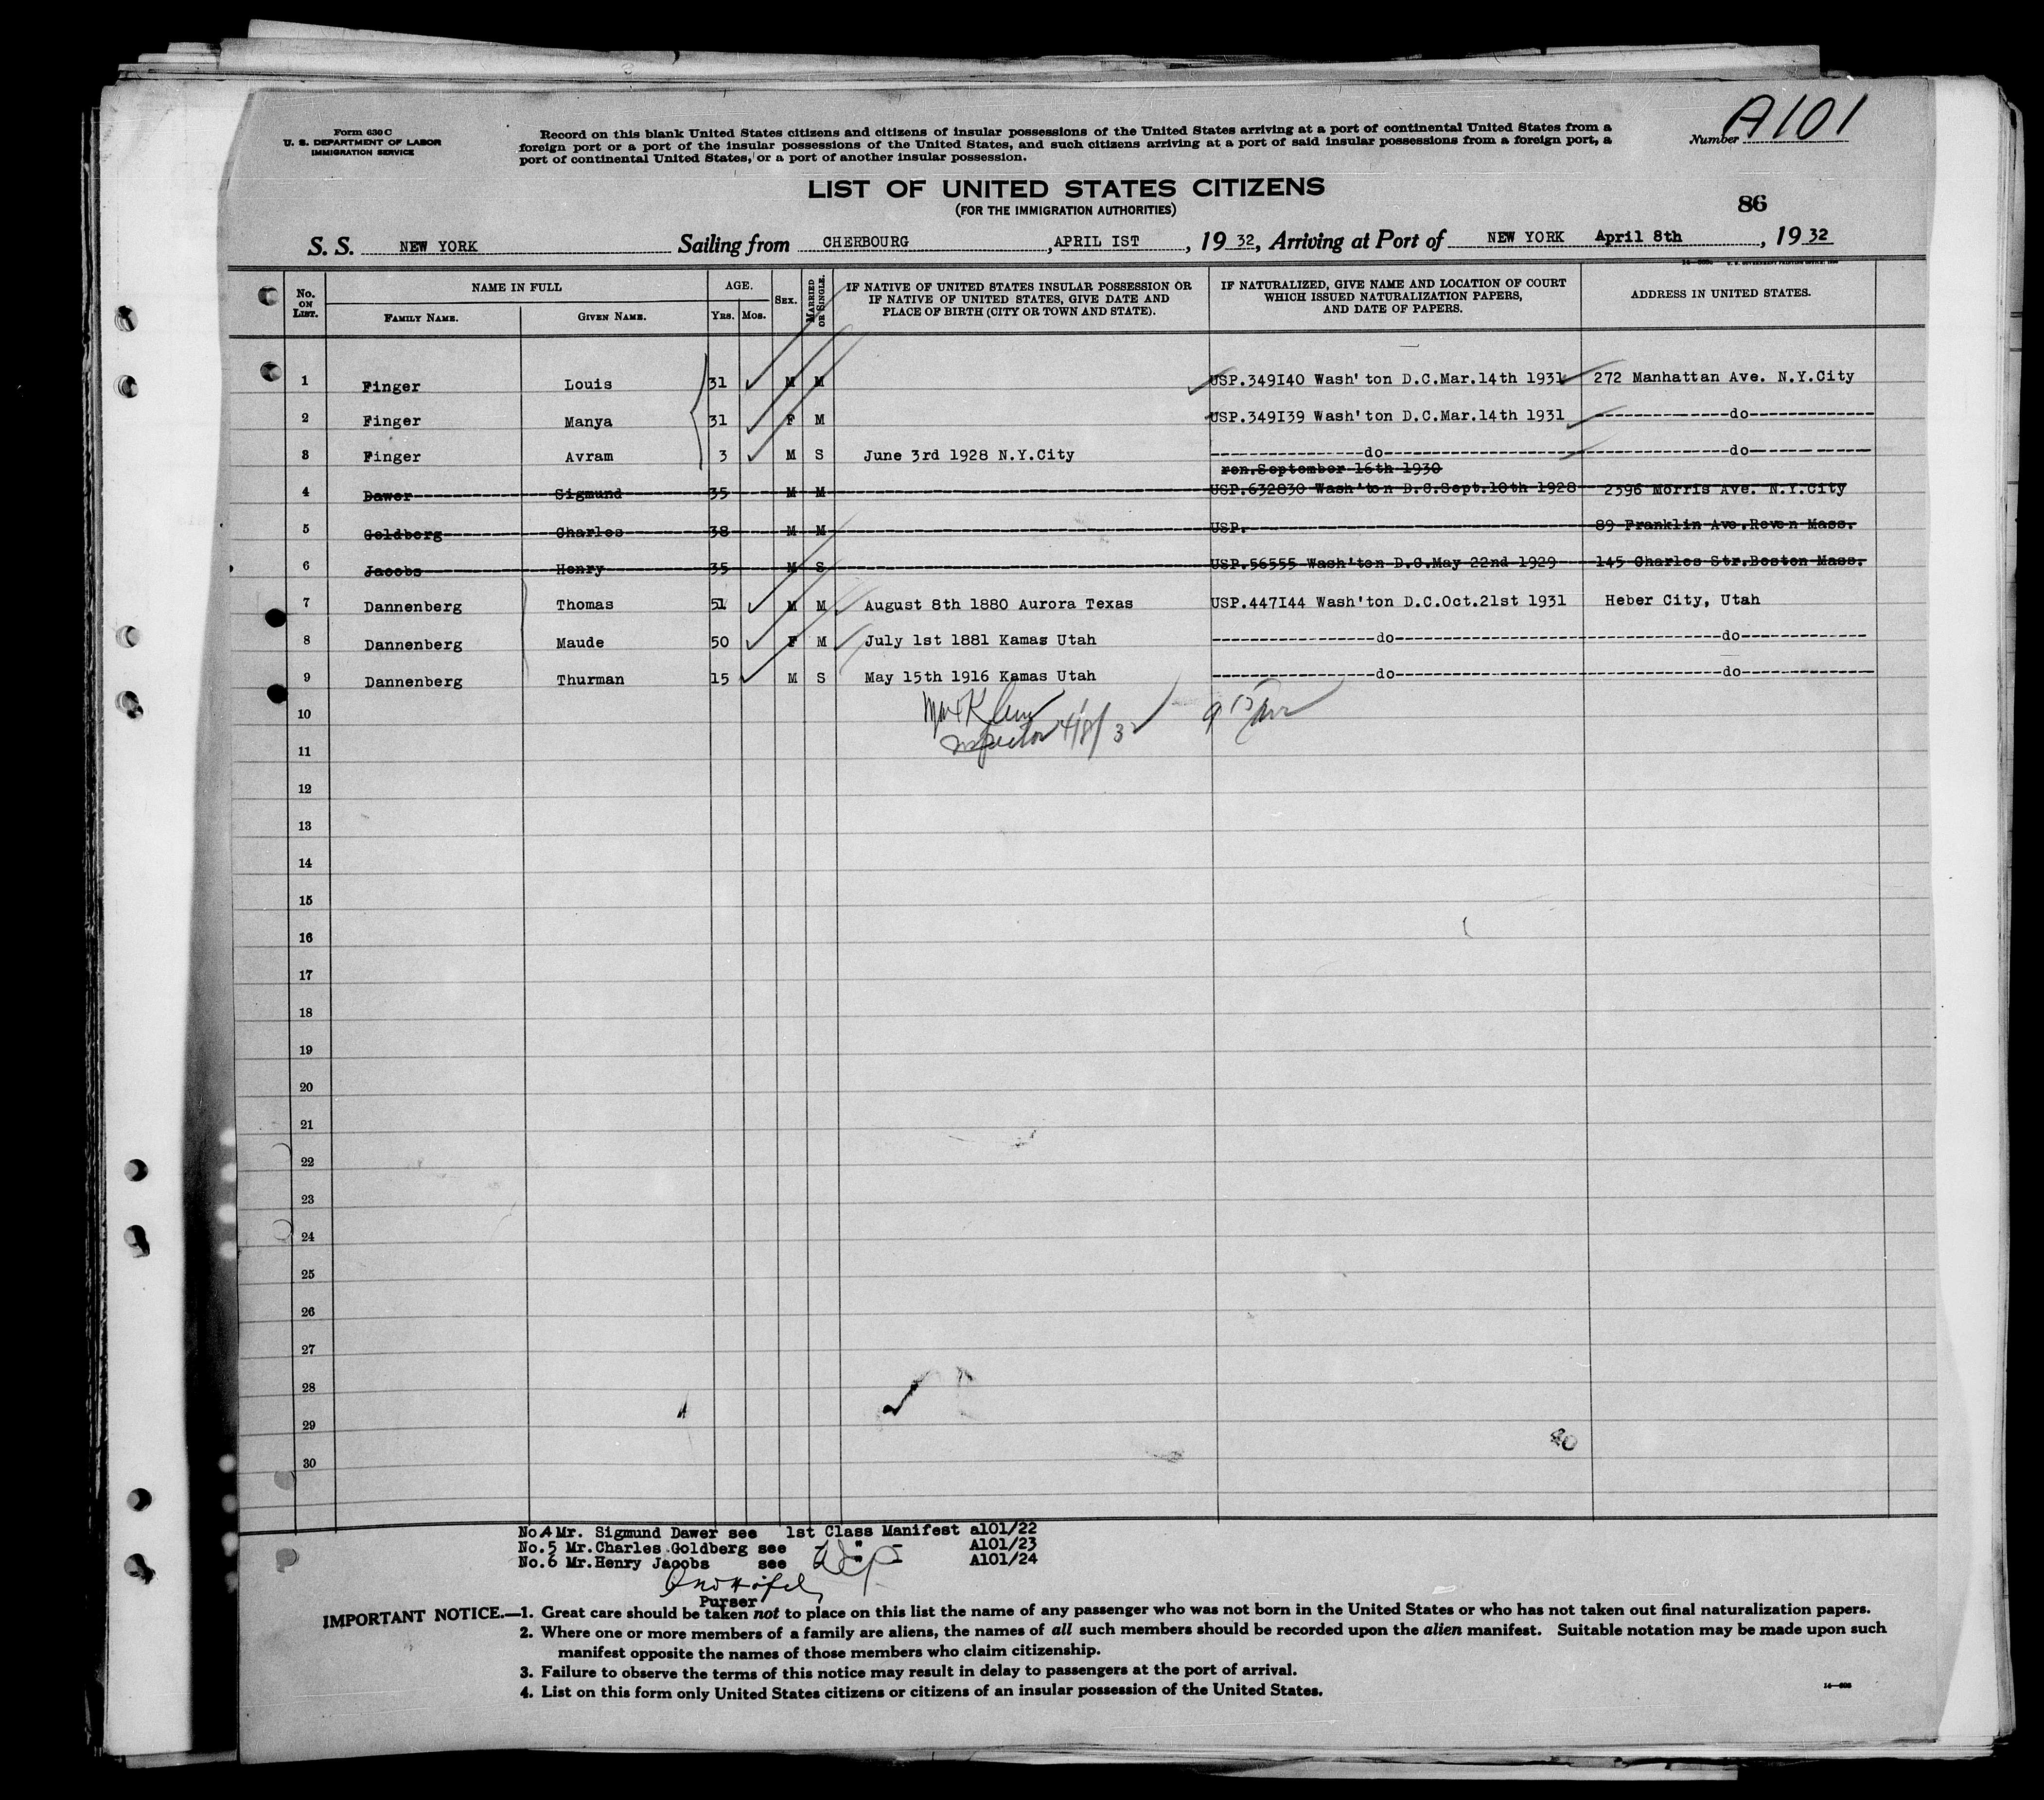 Form 630 C
U. S. DEPARTMENT OF LABOR
IMMIGRATION SERVICE
Record on this blank United States citizens and citizens of insular possessions of the United States arriving at a port of continental United States from a
foreign port or a port of the insular possessions of the United States, and such citizens arriving at a port of said insular possessions from a foreign port, a
port of continental United States, or a port of another insular possession.
Number A101
LIST OF UNITED STATES CITIZENS
(FOR THE IMMIGRATION AUTHORITIES)
86
S. S. NEW YORK Sailing from CHERBOURG , APRIL IST , 19 32, Arriving at Port of NEW YORK April 8th , 19 32
No. ON LIST. NAME IN FULL FAMILY NAME. GIVEN NAME. AGE. YRS. MOS. SEX. MARRIED OR SINGLE. IF NATIVE OF UNITED STATES INSULAR POSSESSION OR IF NATIVE OF UNITED STATES, GIVE DATE AND PLACE OF BIRTH (CITY OR TOWN AND STATE). IF NATURALIZED, GIVE NAME AND LOCATION OF COURT WHICH ISSUED NATURALIZATION PAPERS, AND DATE OF PAPERS. ADDRESS IN UNITED STATES.
1 Finger Louis 31 M M USP.349I40 Wash'ton D.C.Mar.14th 1931 272 Manhattan Ave. N.Y.City
2 Finger Manya 31 F M USP.349I39 Wash'ton D.C.Mar.14th 1931 do
3 Finger Avram 3 M S June 3rd 1928 N.Y.City do do
ren.September 16th 1930
4 Dawer Sigmund 35 M M USP.632830 Wash'ton D.C.Sept.10th 1928 2396 Morris Ave. N.Y.City
5 Goldberg Charles 38 M M USP. 89 Franklin Ave.Reven Mass.
6 Jacobs Henry 35 M S USP.56555 Wash'ton D.C.May 22nd 1929 145 Charles Str.Boston Mass.
7 Dannenberg Thomas 51 M M August 8th 1880 Aurora Texas USP.447I44 Wash'ton D.C.Oct.21st 1931 Heber City, Utah
8 Dannenberg Maude 50 F M July 1st 1881 Kamas Utah do do
9 Dannenberg Thurman 15 M S May 15th 1916 Kamas Utah do do
10
Inspector 4/8/32
11
12
13
14
15
16
17
18
19
20
21
22
23
24
25
26
27
28
29
30
No.4 Mr. Sigmund Dawer see 1st Class Manifest a101/22
No.5 Mr.Charles Goldberg see " A101/23
No.6 Mr.Henry Jacobs see A101/24
Purser
IMPORTANT NOTICE.—1. Great care should be taken not to place on this list the name of any passenger who was not born in the United States or who has not taken out final naturalization papers.
2. Where one or more members of a family are aliens, the names of all such members should be recorded upon the alien manifest. Suitable notation may be made upon such
manifest opposite the names of those members who claim citizenship.
3. Failure to observe the terms of this notice may result in delay to passengers at the port of arrival.
4. List on this form only United States citizens or citizens of an insular possession of the United States.